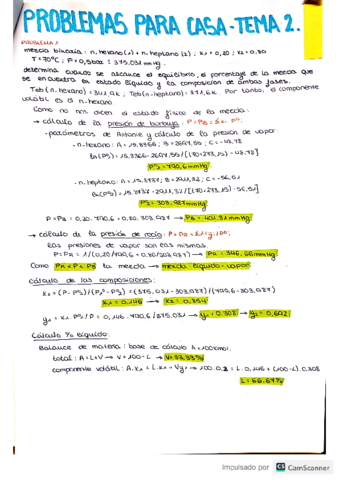 PROBLEMAS PARA CASA-TEMA 2.
PROBLEMA 1
mezcla binaria: n.hexano(1) + n.heptano(2); x1=0,20; x2=0,80
T=70ºC; P=0,5bar = 375,031 mmHg.
determina cuando se alcance el equilibrio, el porcentaje de la mezcla que
se encuentra en estado líquido y la composición de ambas fases.
Teb(n.hexano) = 341,9K; Teb(n.heptano) = 371,6K. Por tanto, el componente
volátil es el n.hexano.
Como no nos dicen el estado físico de la mezcla:
→ cálculo de la presión de burbuja: P=PB=Σxi·Pºi
-parámetros de Antoine y cálculo de la presión de vapor:
-n.hexano: A=15,8366; B=2697,55; C=-48,78
ln(Pº1)=15,8366-2697,55/[(70+273,15)-48,78]
Pº1=790,6mmHg
-n.heptano: A=15,8737; B=2911,32; C=-56,51
ln(Pº2)=15,8737-2911,32/[(70+273,15)-56,51]
Pº2=303,987mmHg
P=PB=0,20·790,6+0,80·303,987 → PB=401,31mmHg
→ cálculo de la presión de rocío: P=PR=Σ1/yi·Pºi
las presiones de vapor son las mismas.
P=PR=1/(0,20/790,6+0,80/303,987) → PR=346,66mmHg
Como PR<P<PB la mezcla → mezcla líquido-vapor
cálculo de las composiciones:
x1=(P-Pº2)/(Pº1-Pº2)=(375,031-303,987)/(790,6-303,987)
x1=0,146 → x2=0,854
y1=x1·Pº1/P=0,146·790,6/375,031 → y1=0,308 → y2=0,692
Cálculo % líquido:
Balance de materia: base de cálculo A=100kmol.
total: A=L+V → V=100-L → V=33,33%
componente volátil: A·x1=L·x1+V·y1 → 100·0,2=L·0,146+(100-L)·0,308
L=66,67%
Impulsado por CS CamScanner